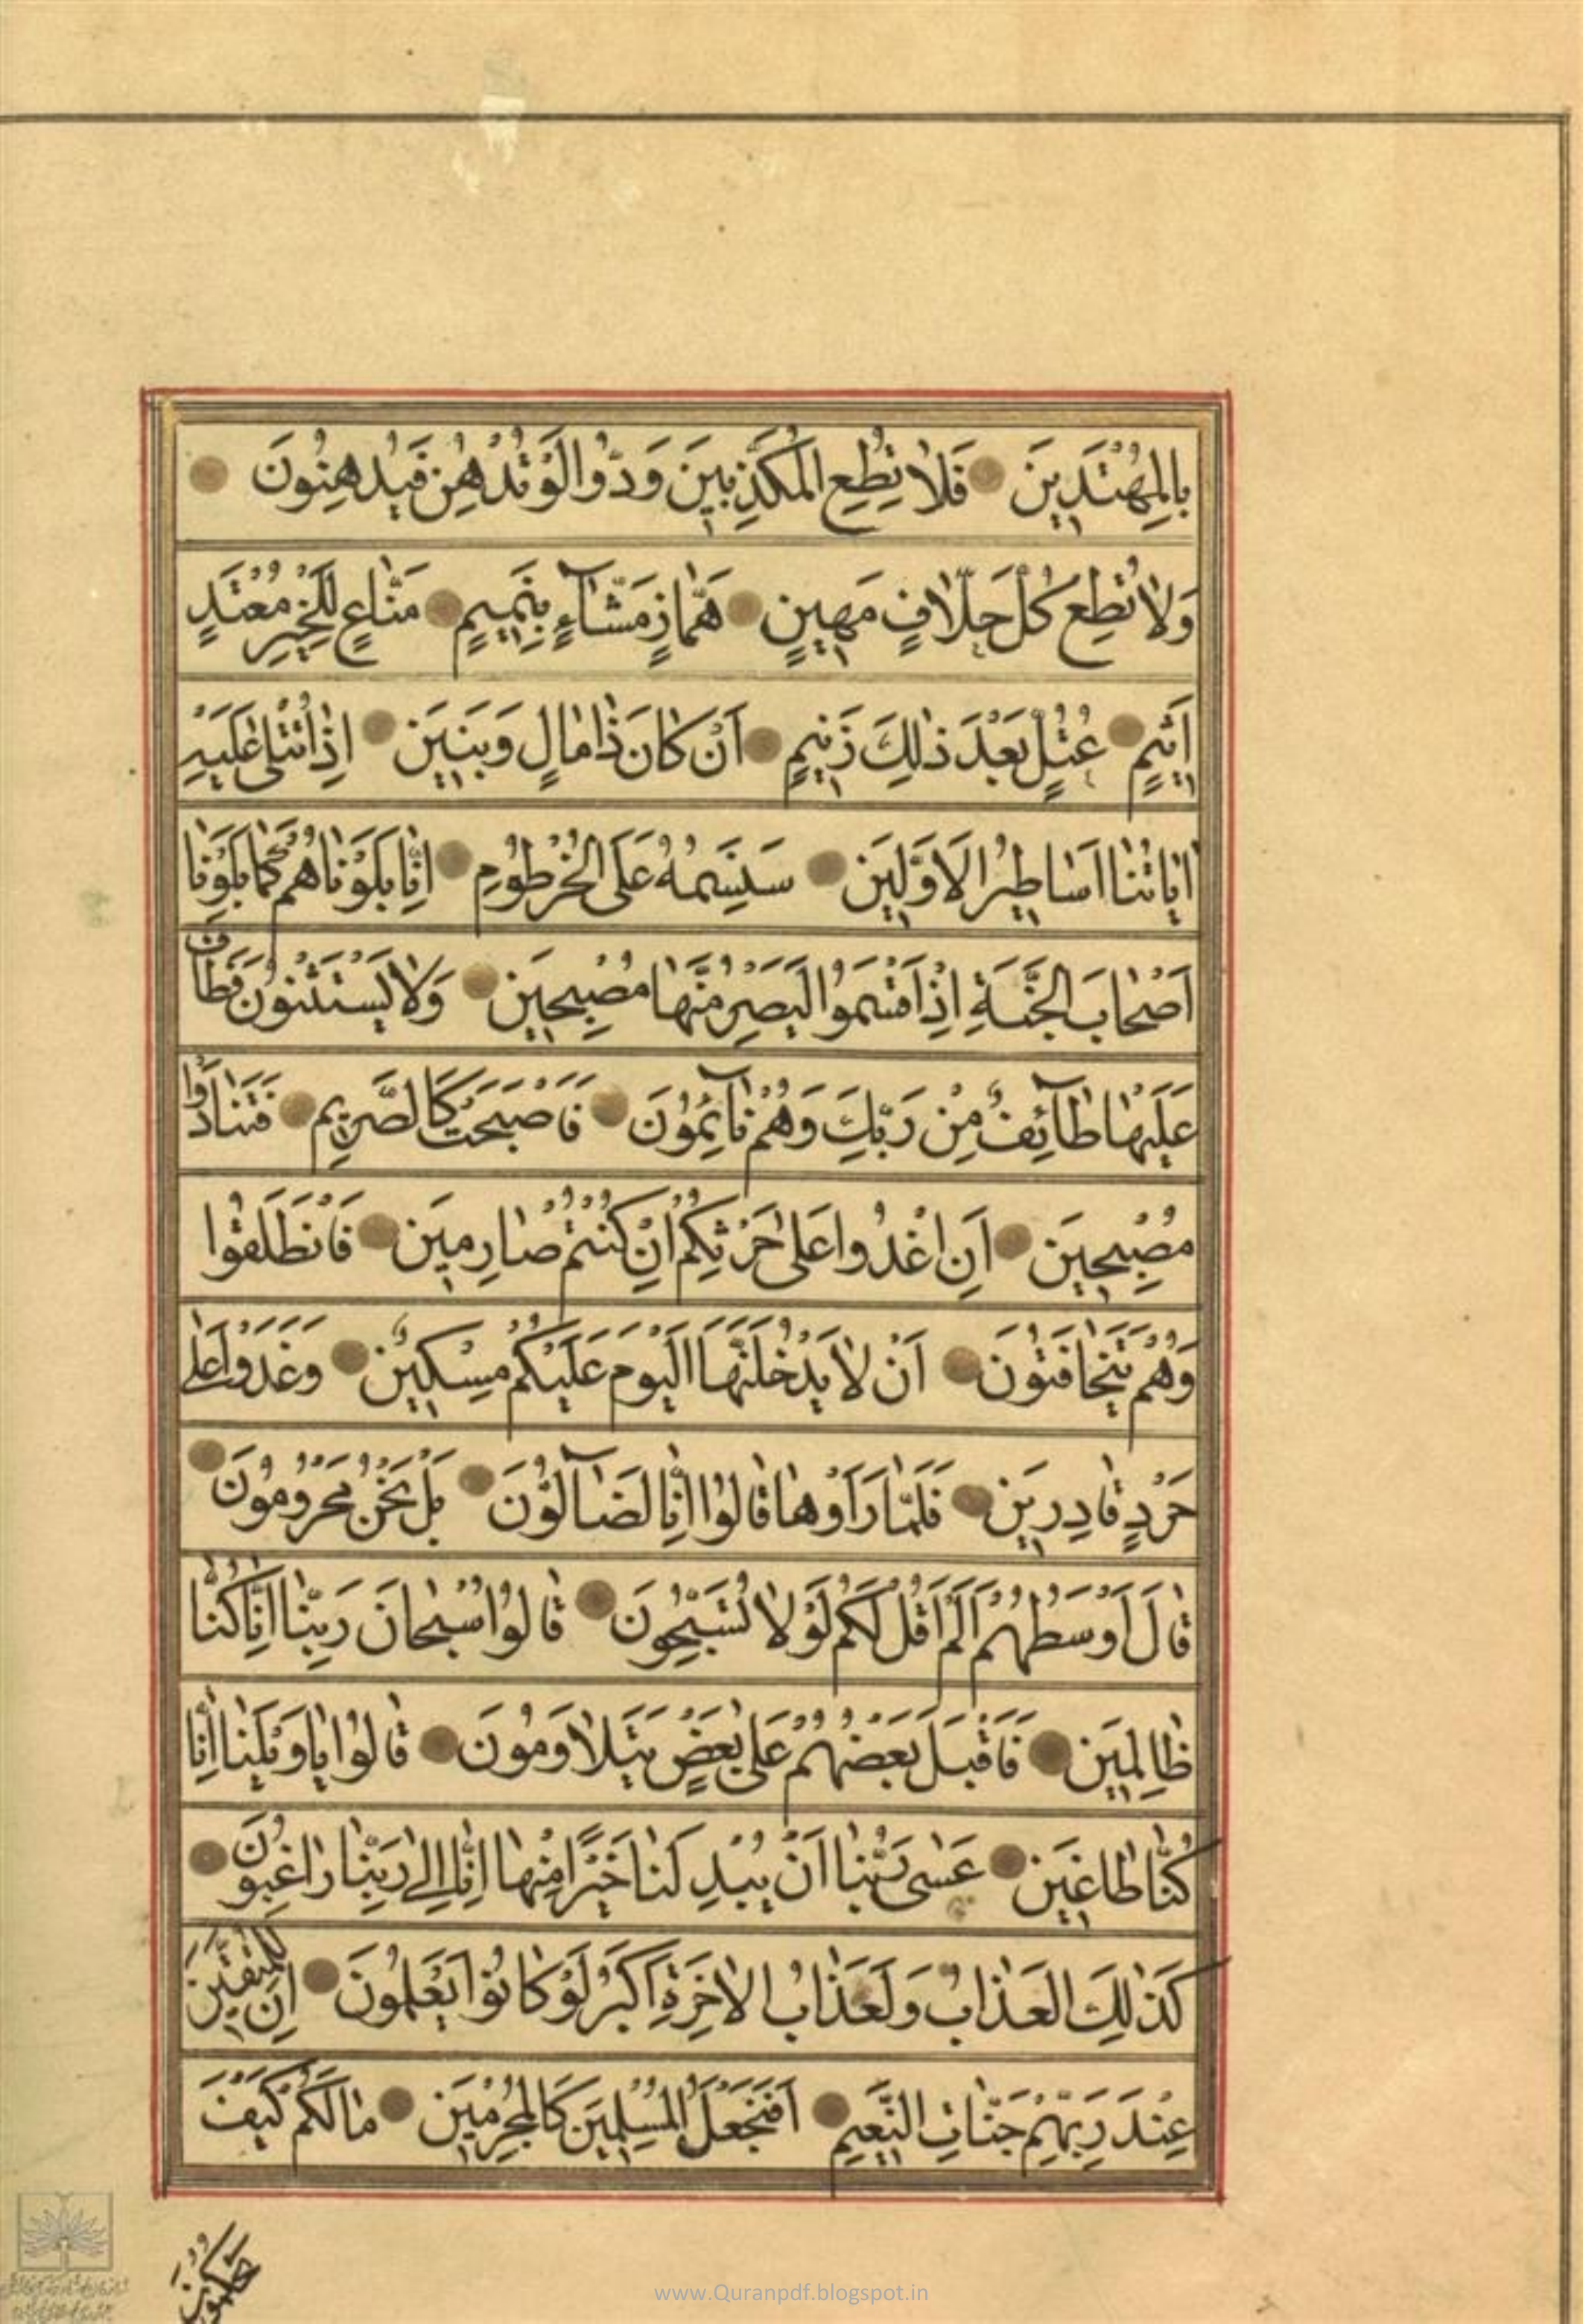 بِالْمُهْتَدِينَ فَلَا تُطِعِ الْمُكَذِّبِينَ وَدُّوا لَوْ تُدْهِنُ فَيُدْهِنُونَ
وَلَا تُطِعْ كُلَّ حَلَّافٍ مَهِينٍ هَمَّازٍ مَشَّآءٍ بِنَمِيمٍ مَنَّاعٍ لِلْخَيْرِ مُعْتَدٍ
أَثِيمٍ عُتُلٍّ بَعْدَ ذٰلِكَ زَنِيمٍ اَنْ كَانَ ذَا مَالٍ وَبَنِينَ اِذَا تُتْلٰى عَلَيْهِ
اٰيَاتُنَا اَسَاطِيرُ الْاَوَّلِينَ سَنَسِمُهُ عَلَى الْخُرْطُومِ اِنَّا بَلَوْنَاهُمْ كَمَا بَلَوْنَا
اَصْحَابَ الْجَنَّةِ اِذْ اَقْسَمُوا لَيَصْرِمُنَّهَا مُصْبِحِينَ وَلَا يَسْتَثْنُونَ فَطَافَ
عَلَيْهَا طَآئِفٌ مِنْ رَبِّكَ وَهُمْ نَآئِمُونَ فَاَصْبَحَتْ كَالصَّرِيمِ فَتَنَادَوْا
مُصْبِحِينَ اَنِ اغْدُوا عَلٰى حَرْثِكُمْ اِنْ كُنْتُمْ صَارِمِينَ فَانْطَلَقُوا
وَهُمْ يَتَخَافَتُونَ اَنْ لَا يَدْخُلَنَّهَا الْيَوْمَ عَلَيْكُمْ مِسْكِينٌ وَغَدَوْا عَلٰى
حَرْدٍ قَادِرِينَ فَلَمَّا رَاَوْهَا قَالُوا اِنَّا لَضَآلُّونَ بَلْ نَحْنُ مَحْرُومُونَ
قَالَ اَوْسَطُهُمْ اَلَمْ اَقُلْ لَكُمْ لَوْلَا تُسَبِّحُونَ قَالُوا سُبْحَانَ رَبِّنَا اِنَّا كُنَّا
ظَالِمِينَ فَاَقْبَلَ بَعْضُهُمْ عَلٰى بَعْضٍ يَتَلَاوَمُونَ قَالُوا يَا وَيْلَنَا اِنَّا
كُنَّا طَاغِينَ عَسٰى رَبُّنَا اَنْ يُبْدِلَنَا خَيْرًا مِنْهَا اِنَّا اِلٰى رَبِّنَا رَاغِبُونَ
كَذٰلِكَ الْعَذَابُ وَلَعَذَابُ الْاٰخِرَةِ اَكْبَرُ لَوْ كَانُوا يَعْلَمُونَ اِنَّ لِلْمُتَّقِينَ
عِنْدَ رَبِّهِمْ جَنَّاتِ النَّعِيمِ اَفَنَجْعَلُ الْمُسْلِمِينَ كَالْمُجْرِمِينَ مَا لَكُمْ كَيْفَ
تَحْكُمُونَ
www.Quranpdf.blogspot.in